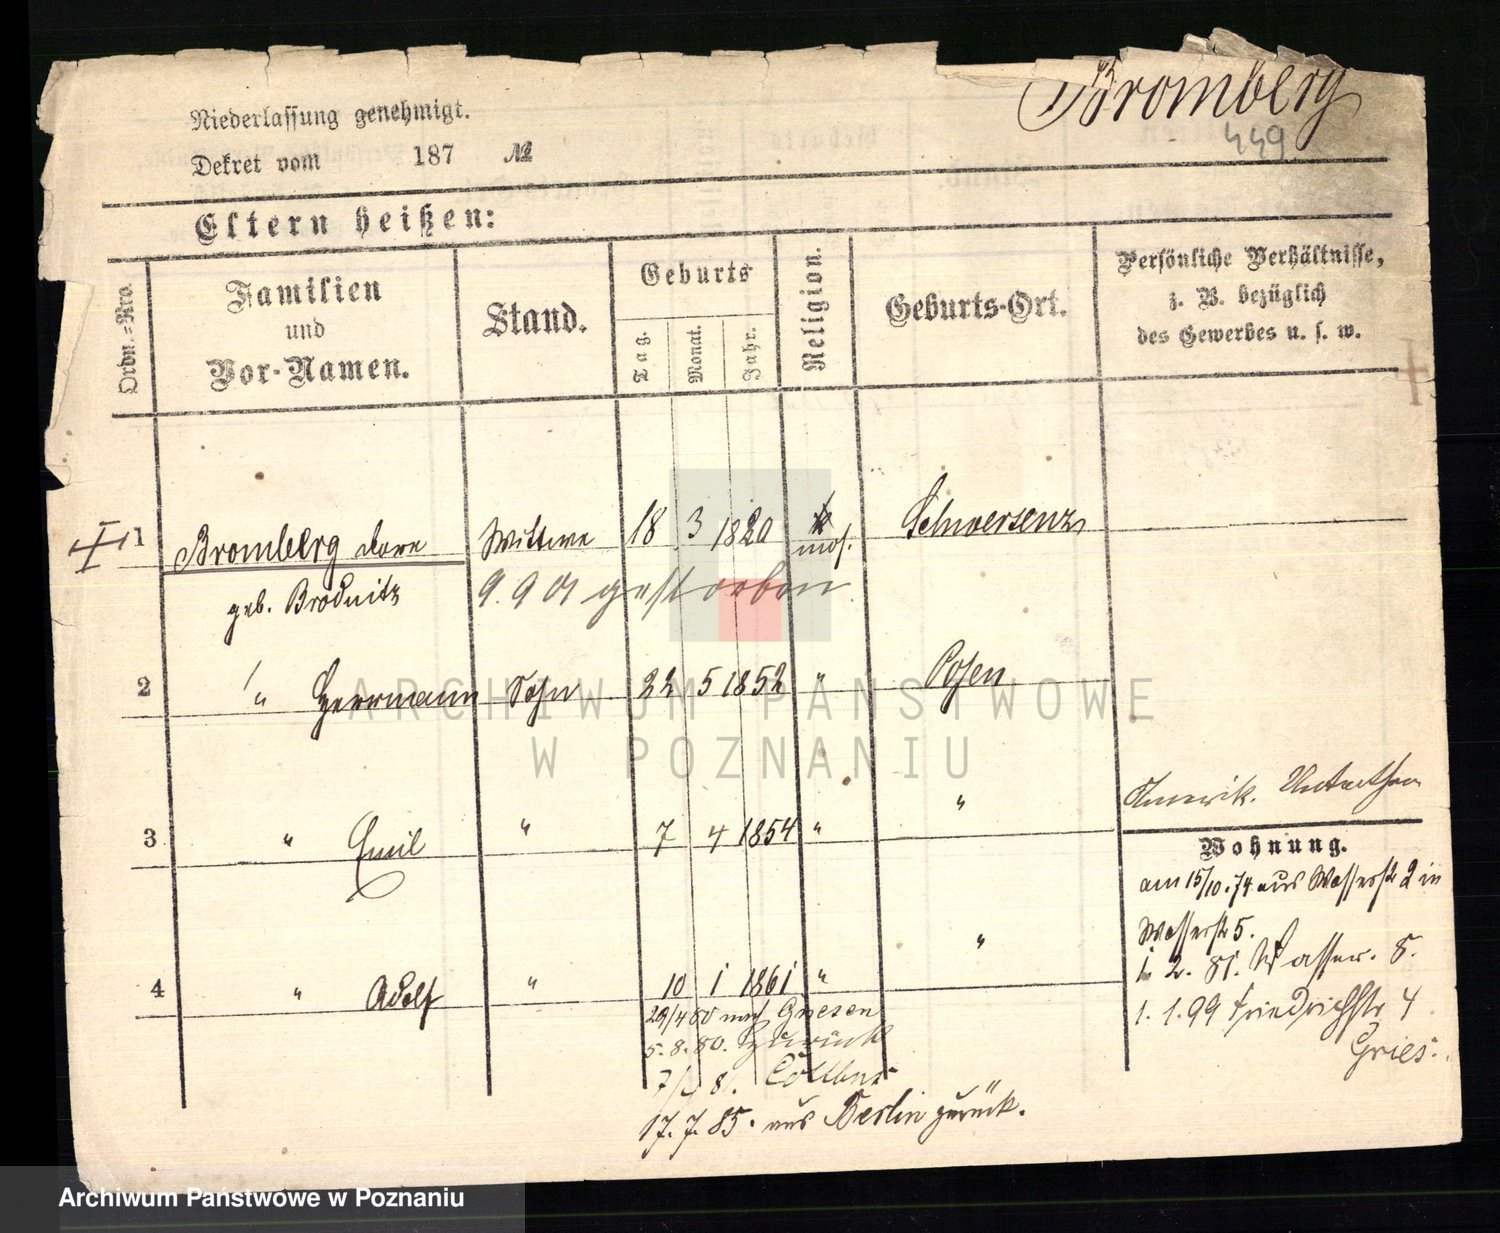 Bromberg
449
Niederlassung genehmigt.
Dekret vom 187 №
Eltern heißen:
Ordn.=Nro.
Familien und Vor-Namen.
Stand.
Geburts
Tag.
Monat.
Jahr.
Religion.
Geburts-Ort.
Persönliche Verhältnisse, z. B. bezüglich des Gewerbes u. s. w.
1 Bromberg Dore Wittwe 18 3 1820 mos. Schwersenz
geb. Brodnitz
9.9 01 gestorben
2 " Herrmann Sohn 22 5 1852 " Posen
3 " Emil " 7 4 1854 " "
Amerik. Unterthan
Wohnung.
am 15/10.74 aus Wasserstr 2 in
Wasserstr 5.
2. 81. Wasser. 8.
1. 1.99 Friedrichstr 4
Gries.
4 " Adolf " 10 1 1861 " "
29/4 80 nach Gnesen
5.8.80. zurück
81. Cottbus
17.7.85. aus Berlin zurück.
ARCHIWUM PAŃSTWOWE
W POZNANIU
Archiwum Państwowe w Poznaniu